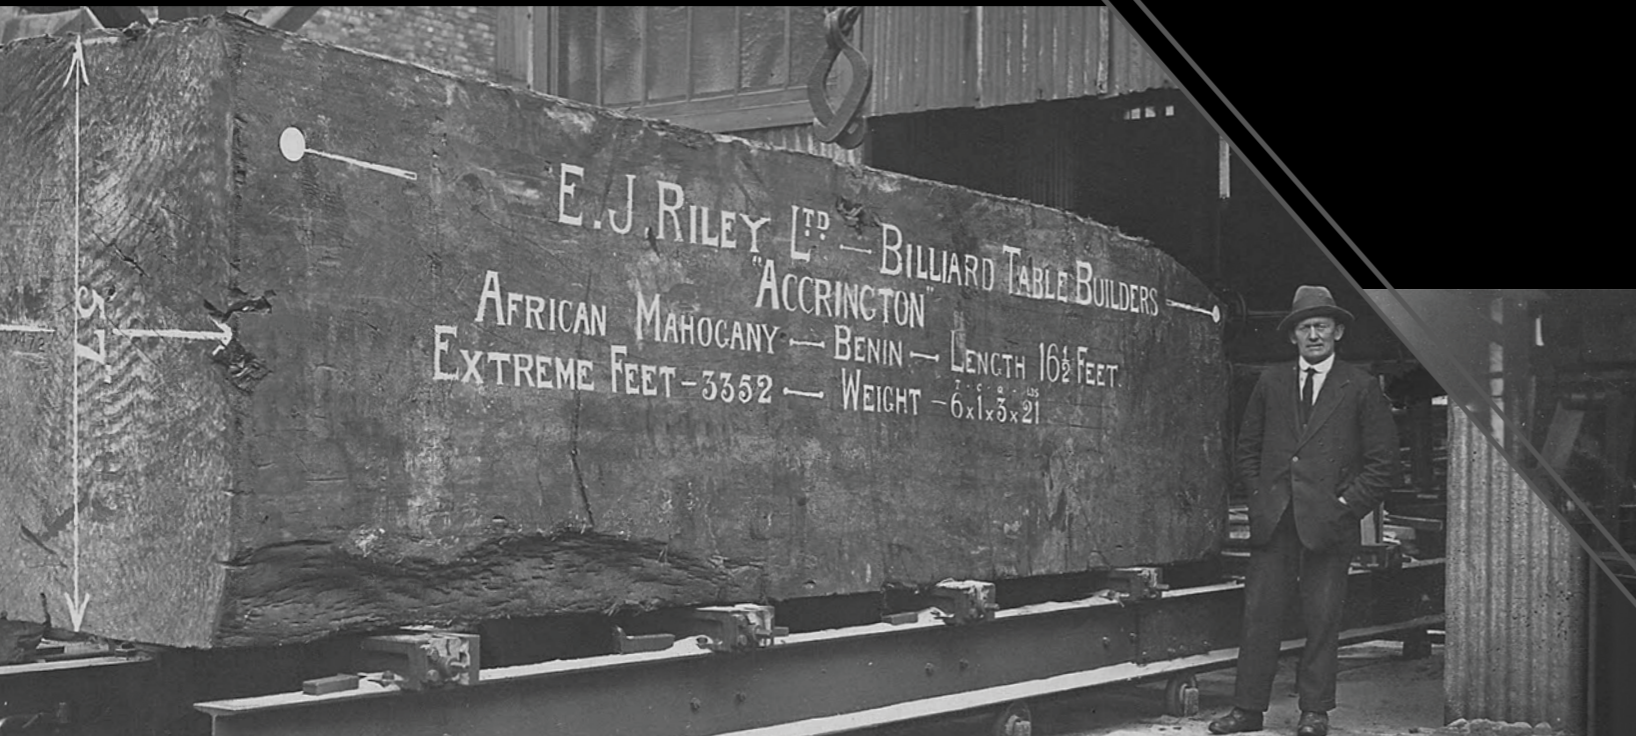 E.J. RILEY LTD — BILLIARD TABLE BUILDERS
"ACCRINGTON"
AFRICAN MAHOGANY — BENIN — LENGTH 16½ FEET.
EXTREME FEET – 3352 — WEIGHT – 6x1x3x21
T · C · Q · LBS
57